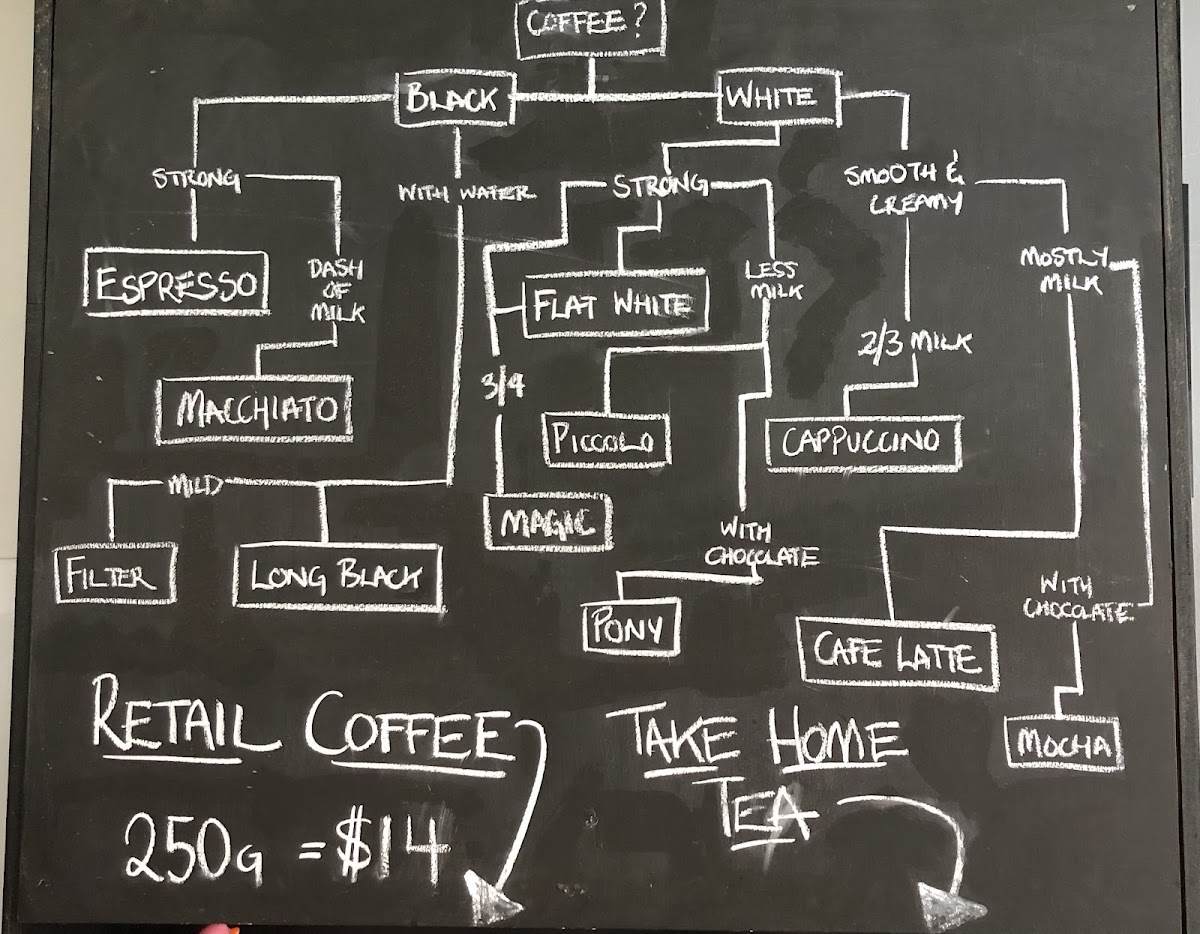 COFFEE?
BLACK
WHITE
STRONG
WITH WATER
STRONG
SMOOTH &
CREAMY
ESPRESSO
DASH
OF
MILK
FLAT WHITE
LESS
MILK
MOSTLY
MILK
2/3 MILK
3/4
MACCHIATO
PICCOLO
CAPPUCCINO
MILD
MAGIC
WITH
CHOCOLATE
FILTER
LONG BLACK
WITH
CHOCOLATE
PONY
CAFE LATTE
MOCHA
RETAIL COFFEE
250G = $14
TAKE HOME
TEA